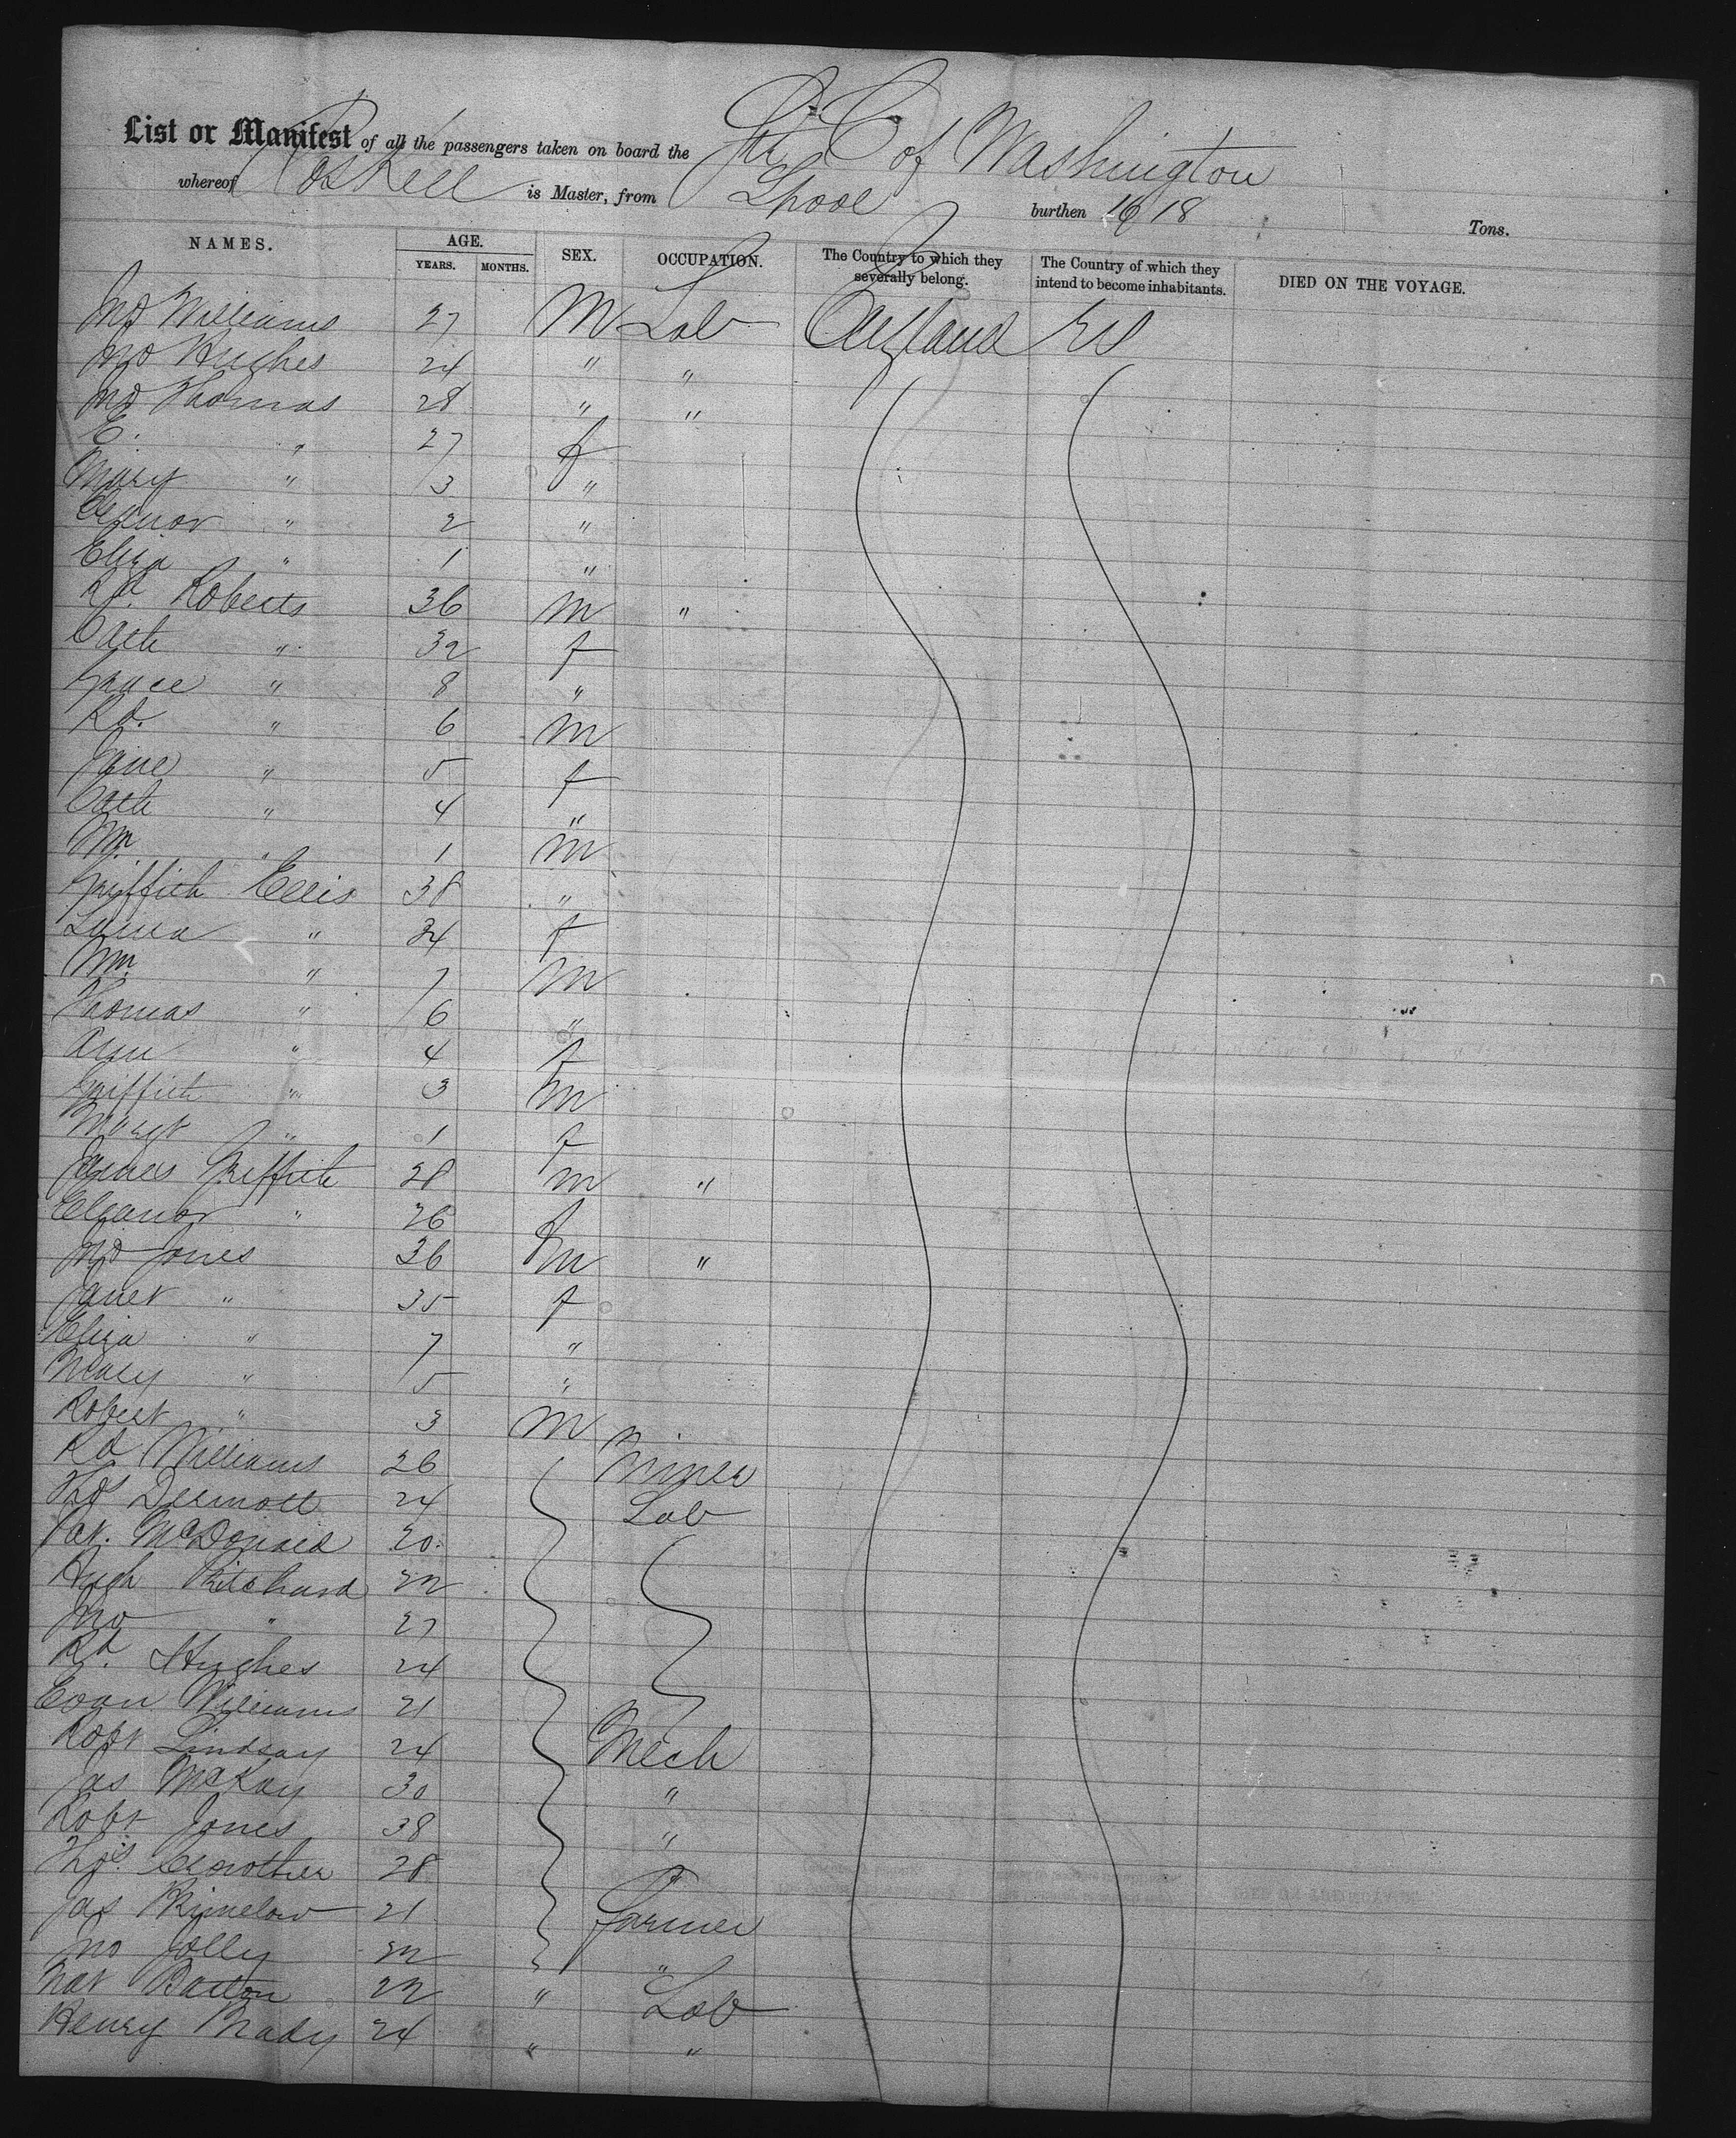 List or Manifest of all the passengers taken on board the Str C of Washington
whereof Roskell is Master, from Lpool burthen 1618 Tons.
NAMES. AGE. YEARS. MONTHS. SEX. OCCUPATION. The Country to which they severally belong. The Country of which they intend to become inhabitants. DIED ON THE VOYAGE.
Jno Williams 27 M Lab England US
Jno Hughes 24 " "
Jno Thomas 28 " "
E. " 27 f
Mary " 3 "
Elinor " 2 "
Eliza " 1 "
Rd. Roberts 36 M "
Cath " 32 f
Grace " 8 "
Rd. " 6 M
Jane " 5 f
Cath " 4 "
Wm. " 1 M
Griffith Ellis 38 "
" 34 f
Wm. " 7 M
Thomas " 6 "
Ann " 4 f
Griffith " 3 M
Margt " 1 f
James Griffith 28 M "
Eleanor " 26 f
Jno Jones 36 M "
Janet " 35 f
Eliza " 7 "
Mary " 5 "
Robert " 3 M
Rd Williams 26 Miner
Thos Dermott 24 Lab
Pat. McDonald 20
Hugh Pritchard 22
Jno " 27
Rd. Hughes 24
Evan Williams 21
Robt Lindsay 24 Mech
Jas McKay 30 "
Robt Jones 38 "
Thos. Crowther 28
Jas 21 Farmer
Jno Jolly 22 "
Nat Barton 22 " Lab
Henry Brady 24 " "